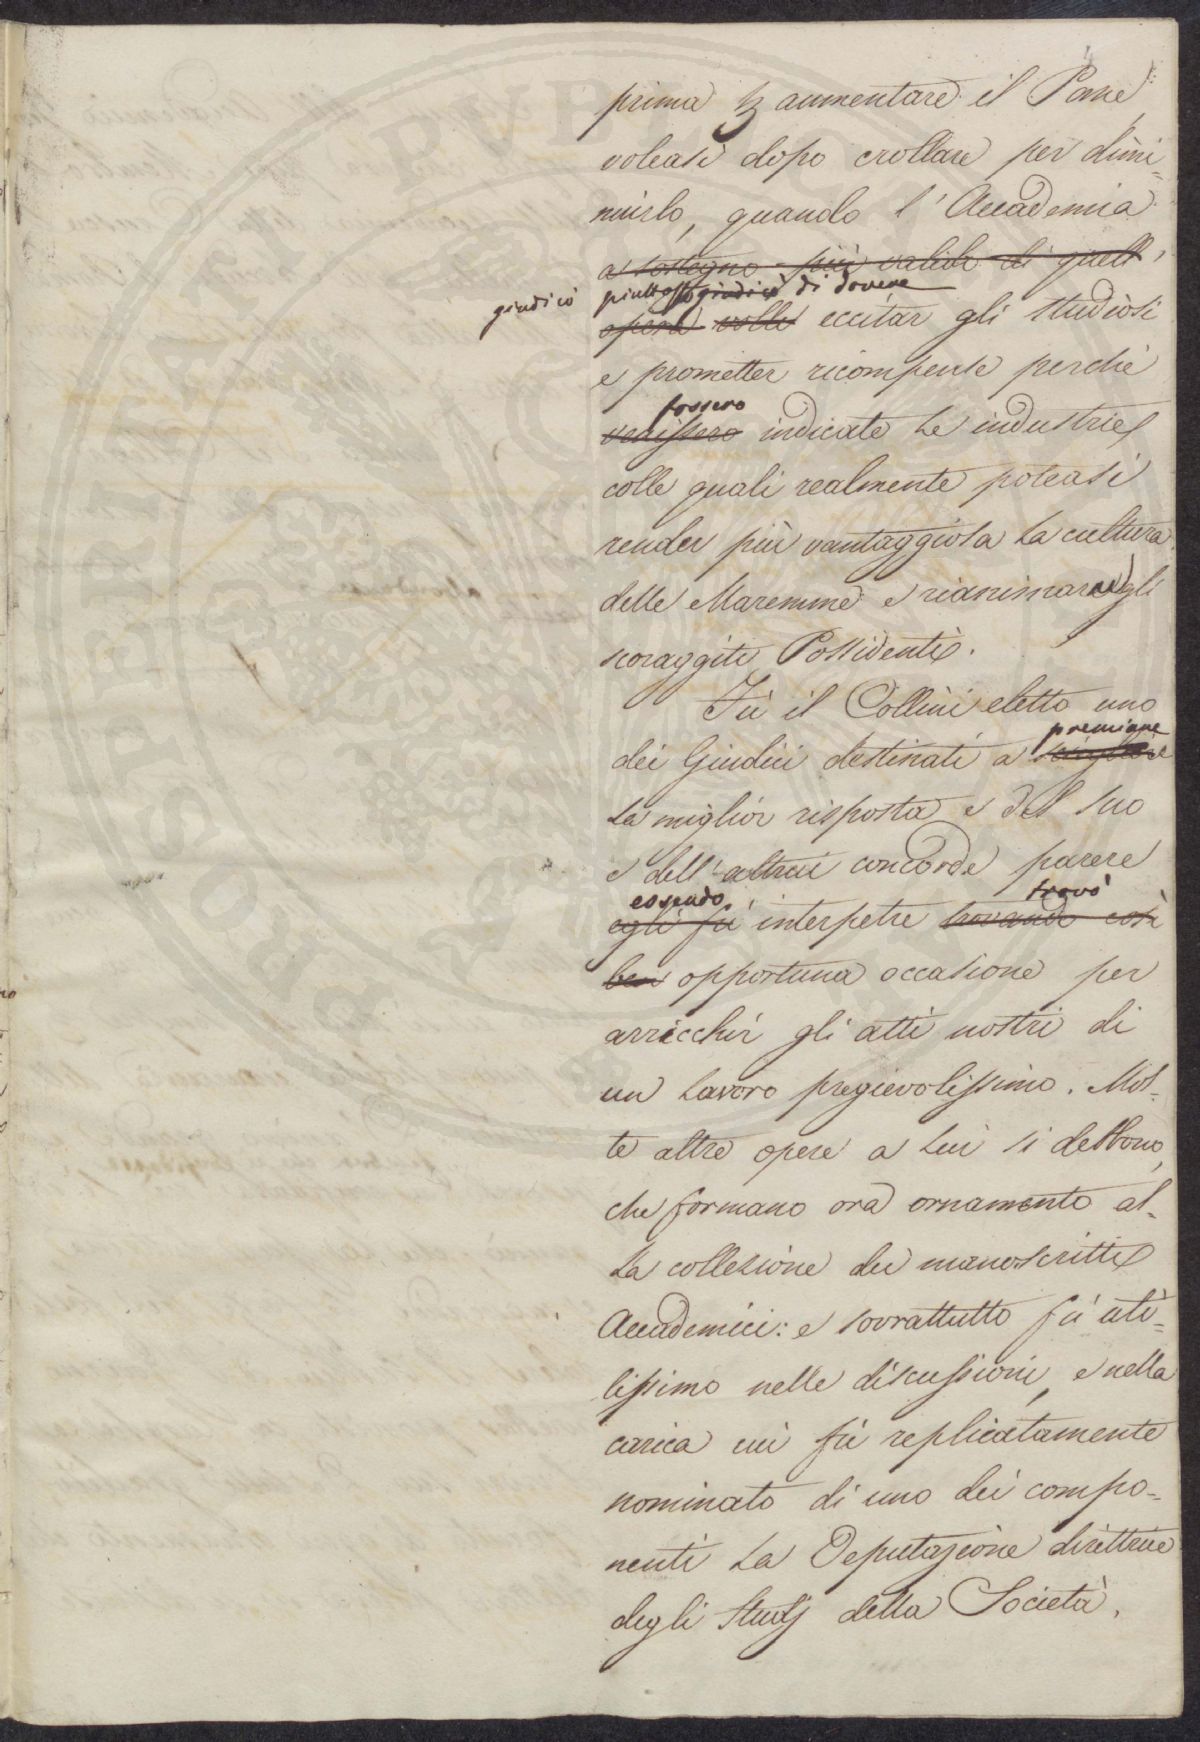 prima ad aumentare il Pane
voleasi dopo crollare per dimi=
nuirlo, quando l'Accademia
a sostegno più valido di quell'
giudicò piuttosto giudicò di dovere
opera volle eccitar gli studiosi
e prometter ricompense perchè
fossero
venissero indicate le industrie
colle quali realmente poteasi
render più vantaggiosa la cultura
delle Maremme e rianimare gli
scoraggiti Possidenti.
Fù il Collini eletto uno
premiare
dei Giudici destinati a scegliere
la miglior risposta e del suo
e dell'altrui concorde parere
essendo trovò
egli fù interpetre trovando così
ben opportuna occasione per
arricchir gli atti nostri di
un lavoro pregievolissimo. Mol=
te altre opere a lui si debbono,
che formano ora ornamento al=
la collezione dei manoscritti
Accademici: e sovrattutto fù uti=
lissimo nelle discussioni, e nella
carica cui fù replicatamente
nominato di uno dei compo=
nenti la Deputazione direttrice
degli Studj della Società.